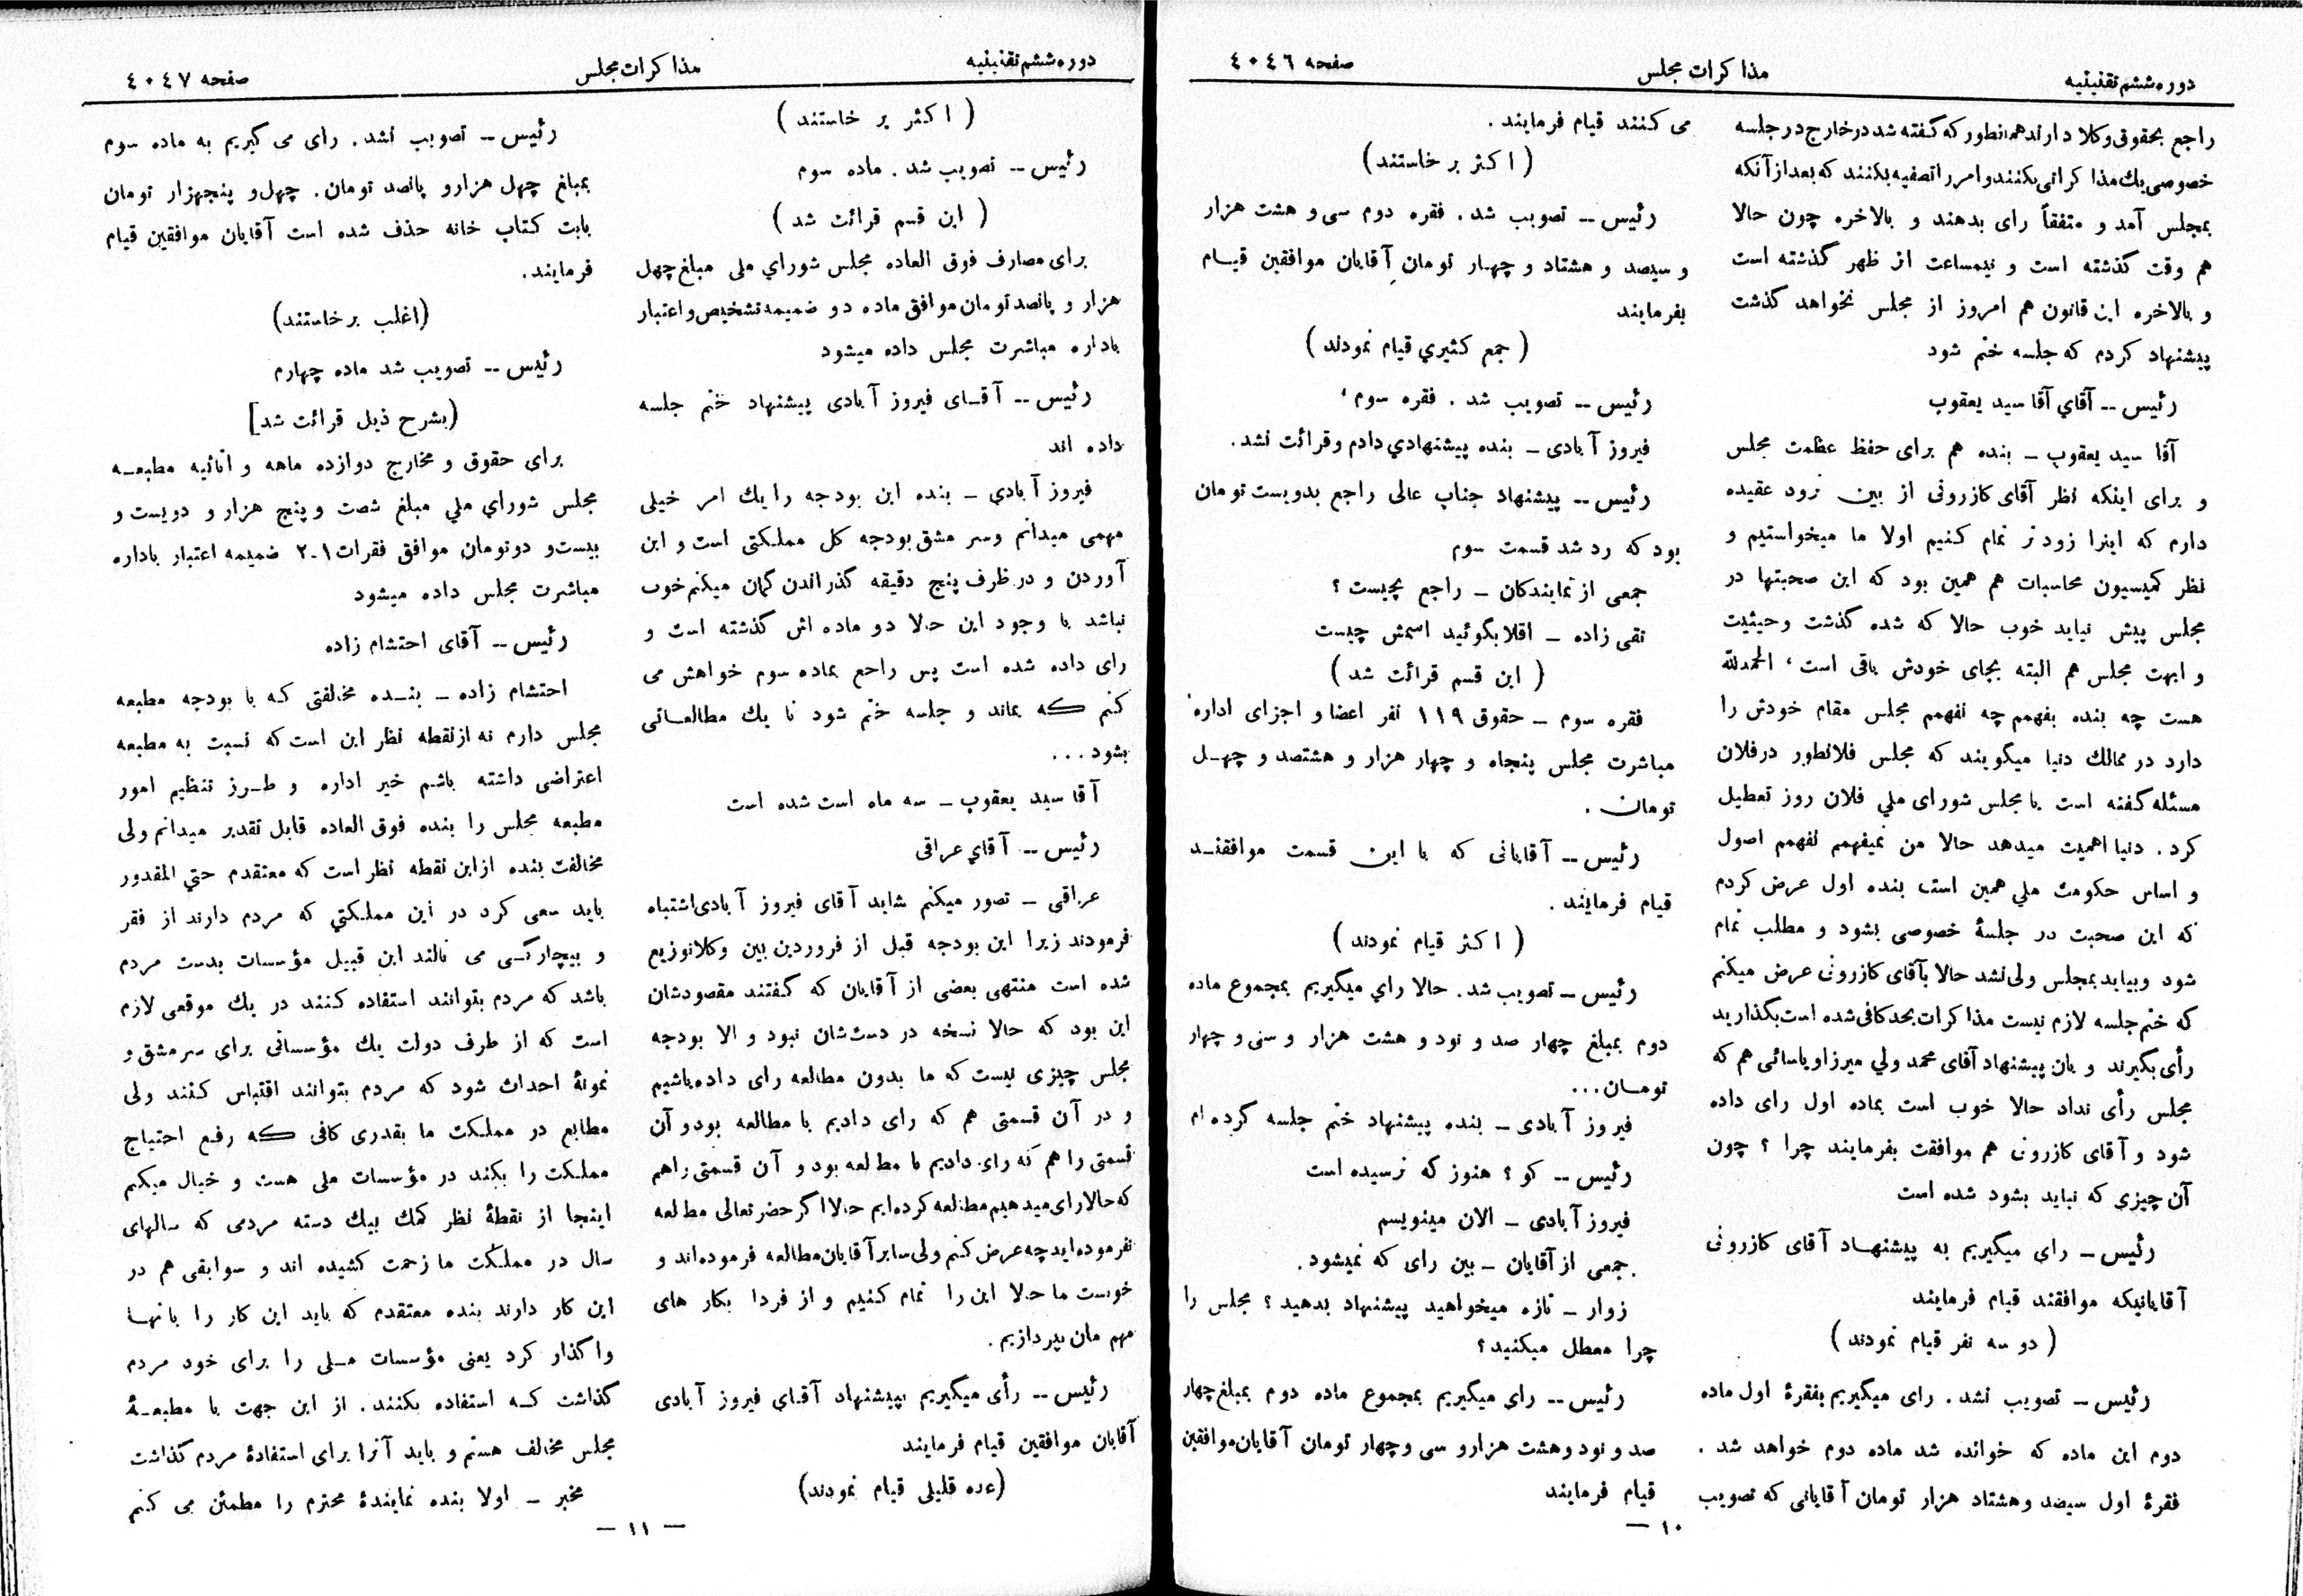 دوره ششم تقنینیه
مذاکرات مجلس
صفحه ٤٠٤٦
راجع بحقوق وکلا دارند همانطور که گفته شد در خارج در جلسه
خصوصی یك مذاکراتی بکنند و امر را تصفیه بکنند که بعد از آنکه
بمجلس آمد و متفقاً رای بدهند و بالاخره چون حالا
هم وقت گذشته است و نیمساعت از ظهر گذشته است
و بالاخره این قانون هم امروز از مجلس نخواهد گذشت
پیشنهاد کردم که جلسه ختم شود
رئیس -- آقاي آقا سید یعقوب
آقا سید یعقوب - بنده هم برای حفظ عظمت مجلس
و برای اینکه نظر آقای کازرونی از بین نرود عقیده
دارم که اینرا زودتر تمام کنیم اولا ما میخواستیم و
نظر کمیسیون محاسبات هم همین بود که این صحبتها در
مجلس پیش نیاید خوب حالا که شده گذشت وحیثیت
و ابهت مجلس هم البته بجای خودش باقی است ، الحمدلله
هست چه بنده بفهمم چه نفهمم مجلس مقام خودش را
دارد در ممالك دنیا میگویند که مجلس فلانطور در فلان
مسئله گفته است یا مجلس شورای ملي فلان روز تعطیل
کرد . دنیا اهمیت میدهد حالا من نمیفهمم نفهمم اصول
و اساس حکومت ملي همین است بنده اول عرض کردم
که این صحبت در جلسهٔ خصوصی بشود و مطلب تمام
شود وبیاید بمجلس ولی نشد حالا بآقای کازرونی عرض میکنم
که ختم جلسه لازم نیست مذاکرات بحد کافی شده است بگذارید
رأی بگیرند و بان پیشنهاد آقای محمد ولي میرزا و یاسائی هم که
مجلس رأی نداد حالا خوب است بماده اول رای داده
شود و آقای کازرونی هم موافقت بفرمایند چرا ؟ چون
آن چیزي که نباید بشود شده است
رئیس - رای میگیریم به پیشنهاد آقای کازرونی
آقایانیکه موافقند قیام فرمایند
( دو سه نفر قیام نمودند )
رئیس - تصویب نشد . رای میگیریم بفقرهٔ اول ماده
دوم این ماده که خوانده شد ماده دوم خواهد شد .
فقرهٔ اول سیصد و هشتاد هزار تومان آقایانی که تصویب
می کنند قیام فرمایند .
( اکثر بر خاستند )
رئیس -- تصویب شد . فقره دوم سی و هشت هزار
و سیصد و هشتاد و چهار تومان آقایان موافقین قیام
بفرمایند
( جمع کثیري قیام نمودند )
رئیس -- تصویب شد . فقره سوم ،
فیروز آبادی - بنده پیشنهادي دادم وقرائت نشد .
رئیس -- پیشنهاد جناب عالی راجع بدویست تومان
بود که رد شد قسمت سوم
جمعی از نمایندکان - راجع بچیست ؟
تقی زاده - اقلا بگوئید اسمش چیست
( این قسم قرائت شد )
فقره سوم - حقوق ۱۱۹ نفر اعضا و اجزای اداره
مباشرت مجلس پنجاه و چهار هزار و هشتصد و چهل
تومان .
رئیس -- آقایانی که با این قسمت موافقند
قیام فرمایند .
( اکثر قیام نمودند )
رئیس - تصویب شد . حالا راي میگیریم بمجموع ماده
دوم بمبلغ چهار صد و نود و هشت هزار و سی و چهار
تومان...
فیروز آبادی - بنده پیشنهاد ختم جلسه کرده ام
رئیس -- کو ؟ هنوز که نرسیده است
فیروز آبادی - الان مینویسم
جمعی از آقایان - بین رای که نمیشود .
زوار - تازه میخواهید پیشنهاد بدهید ؟ مجلس را
چرا معطل میکنید ؟
رئیس -- رای میگیریم بمجموع ماده دوم بمبلغ چهار
صد و نود و هشت هزار و سی و چهار تومان آقایان موافقین
قیام فرمایند
۱۰ -
دوره ششم تقنینیه
مذاکرات مجلس
صفحه ٤٠٤٧
( اکثر بر خاستند )
رئیس -- تصویب شد . ماده سوم
( این قسم قرائت شد )
برای مصارف فوق العاده مجلس شوراي ملی مبلغ چهل
هزار و پانصد تومان موافق ماده دو ضمیمه تشخیص و اعتبار
باداره مباشرت مجلس داده میشود
رئیس -- آقای فیروز آبادی پیشنهاد ختم جلسه
داده اند
فیروز آبادي - بنده این بودجه را یك امر خیلی
مهمی میدانم وسر مشق بودجه کل مملکتی است و این
آوردن و در ظرف پنج دقیقه گذراندن گمان میکنم خوب
نباشد با وجود این حالا دو ماده اش گذشته است و
رای داده شده است پس راجع بماده سوم خواهش می
کنم که بماند و جلسه ختم شود تا یك مطالعاتی
بشود...
آقا سید یعقوب - سه ماه است شده است
رئیس -- آقاي عراقی
عراقی - تصور میکنم شاید آقای فیروز آبادی اشتباه
فرمودند زیرا این بودجه قبل از فروردین بین وکلا توزیع
شده است منتهی بعضی از آقایان که گفتند مقصودشان
این بود که حالا نسخه در دستشان نبود و الا بودجه
مجلس چیزی نیست که ما بدون مطالعه رای داده باشیم
و در آن قسمتی هم که رای دادیم با مطالعه بود و آن
قسمتی را هم که رای دادیم با مطالعه بود و آن قسمتی راهم
که حالا رای میدهیم مطالعه کرده ایم حالا اگر حضرتعالی مطالعه
نفرموده اید چه عرض کنم ولی سایر آقایان مطالعه فرموده اند و
خوبست ما حالا این را تمام کنیم و از فردا بکار های
مهم مان بپردازیم .
رئیس -- رأی میگیریم بپیشنهاد آقای فیروز آبادی
آقایان موافقین قیام فرمایند
(عده قلیلی قیام نمودند)
رئیس -- تصویب نشد . رای می گیریم به ماده سوم
بمبلغ چهل هزار و پانصد تومان . چهل و پنجهزار تومان
بابت کتاب خانه حذف شده است آقایان موافقین قیام
فرمایند.
(اغلب برخاستند)
رئیس -- تصویب شد ماده چهارم
(بشرح ذیل قرائت شد]
برای حقوق و مخارج دوازده ماهه و اثاثیه مطبعه
مجلس شوراي ملي مبلغ شصت و پنج هزار و دویست و
بیست و دو تومان موافق فقرات ۱-۲ ضمیمه اعتبار باداره
مباشرت مجلس داده میشود
رئیس -- آقای احتشام زاده
احتشام زاده - بنده مخالفتی که با بودجه مطبعه
مجلس دارم نه از نقطه نظر این است که نسبت به مطبعه
اعتراضی داشته باشم خیر اداره و طرز تنظیم امور
مطبعه مجلس را بنده فوق العاده قابل تقدیر میدانم ولی
مخالفت بنده از این نقطه نظر است که معتقدم حتي المقدور
باید سعی کرد در این مملکتي که مردم دارند از فقر
و بیچارگی می نالند این قبیل مؤسسات بدست مردم
باشد که مردم بتوانند استفاده کنند در یك موقعی لازم
است که از طرف دولت یك مؤسساتی برای سرمشق و
نمونهٔ احداث شود که مردم بتوانند اقتباس کنند ولی
مطابع در مملکت ما بقدری کافی که رفع احتیاج
مملکت را بکند در مؤسسات ملی هست و خیال میکنم
اینجا از نقطهٔ نظر کمك بیك دسته مردمی که سالهای
سال در مملکت ما زحمت کشیده اند و سوابقی هم در
این کار دارند بنده معتقدم که باید این کار را بانها
واگذار کرد یعنی مؤسسات ملی را برای خود مردم
گذاشت که استفاده بکنند . از این جهت با مطبعهٔ
مجلس مخالف هستم و باید آنرا برای استفادهٔ مردم گذاشت
مخبر - اولا بنده نمایندهٔ محترم را مطمئن می کنم
- ۱۱ -